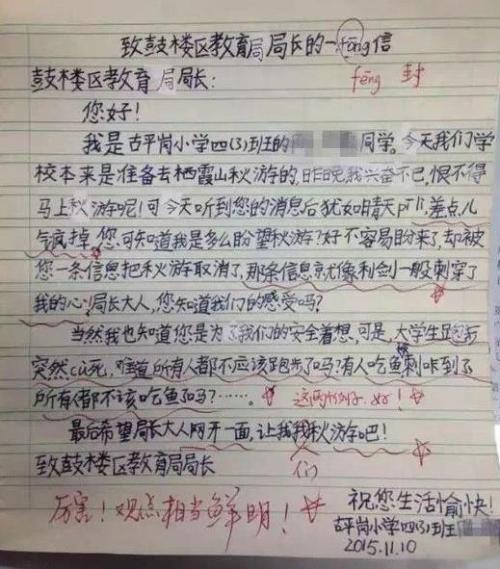 致鼓楼区教育局局长的一fōng信
fēng 封
鼓楼区教育局局长:
您好!
我是古平岗小学四(3)班的 同学,今天我们学
校本来是准备去栖霞山秋游的,昨晚我兴奋不已,恨不得
马上秋游呢!可今天听到您的消息后犹如晴天pī lì,差点儿
气疯掉,您可知道我是多么盼望秋游?好不容易盼来了,却被
您一条信息把秋游取消了,那条信息就像利剑一般刺穿了
我的心!局长大人,您知道我们的感受吗?
当然我也知道您是为了我们的安全着想,可是,大学生跑步
突然cù死,难道所有人都不应该跑步了吗?有人吃鱼刺咔到了
所有人都不该吃鱼了吗?……。 这两个例子好!
最后希望局长大人网开一面,让我我秋游吧!
致鼓楼区教育局局长 们
厉害!观点相当鲜明!
祝您生活愉快!
古平岗小学四(3)班
2015.11.10